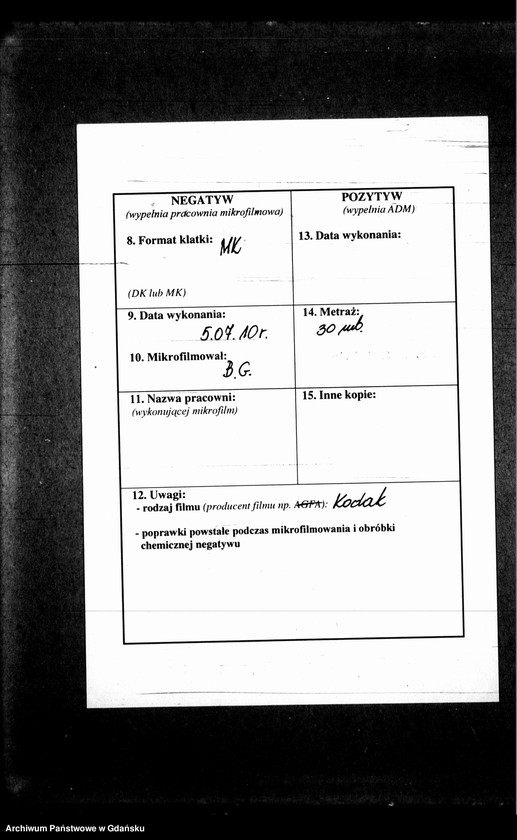 NEGATYW
(wypełnia pracownia mikrofilmowa)
8. Format klatki: MK
(DK lub MK)
POZYTYW
(wypełnia ADM)
13. Data wykonania:
9. Data wykonania:
5.07.10r.
10. Mikrofilmował:
B.G.
14. Metraż:
30 mb.
11. Nazwa pracowni:
(wykonującej mikrofilm)
15. Inne kopie:
12. Uwagi:
- rodzaj filmu (producent filmu np. AGFA): Kodak
- poprawki powstałe podczas mikrofilmowania i obróbki
chemicznej negatywu
Archiwum Państwowe w Gdańsku